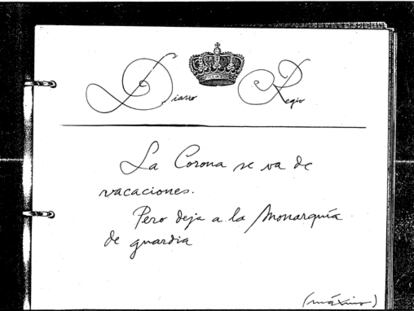 Diario Regio
La Corona se va de
vacaciones.
Pero deja a la Monarquía
de guardia
(máximo)